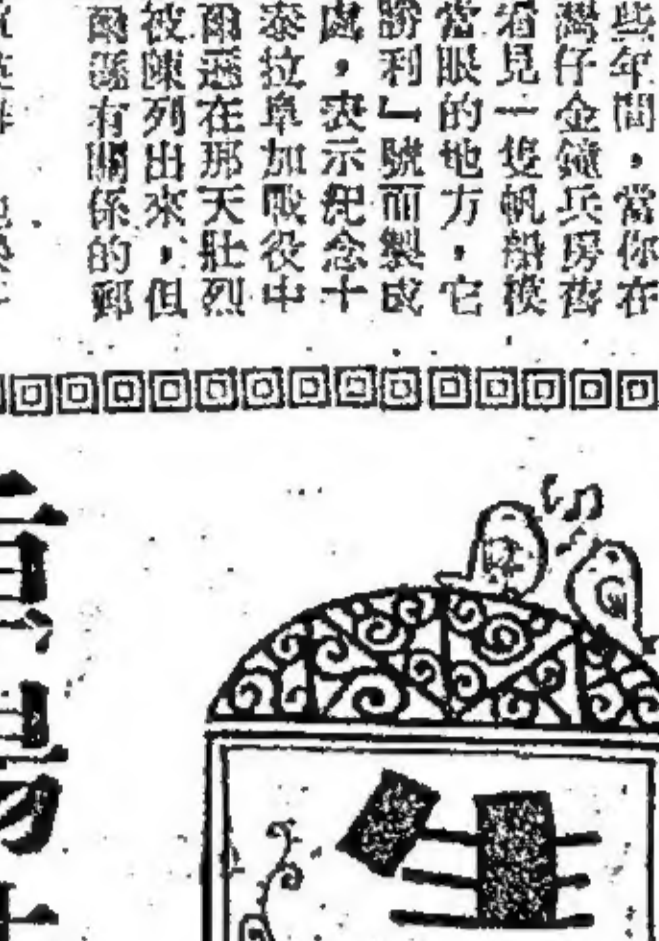 些年間，當你在
灣仔金鐘兵房舊
看見一隻帆船模
當眼的地方，它
勝利」號而製成
處，表示紀念十
泰拉阜加戰役中
爾遜在那天壯烈
被陳列出來，但
爾遜有關係的郵